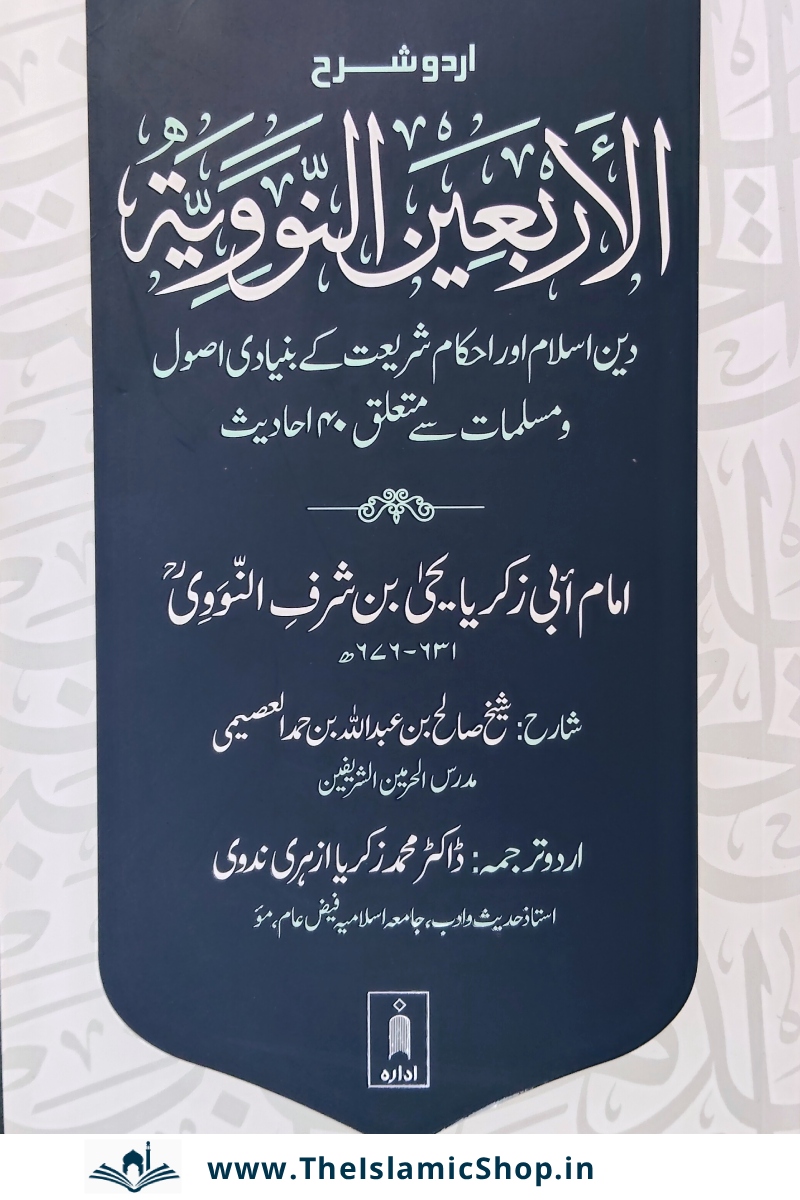 اردو شرح
الأَرْبَعِيْنَ النَّوَوِيَّة
دین اسلام اور احکام شریعت کے بنیادی اصول
و مسلمات سے متعلق ۴۰ احادیث
امام أبی زکریا یحییٰ بن شرفِ النَّوَوِیؒ
۶۳۱-۶۷۶ھ
شارح: شیخ صالح بن عبداللہ بن حمد العصیمی
مدرس الحرمین الشریفین
اردو ترجمہ: ڈاکٹر محمد زکریا ازہری ندوی
استاذ حدیث و ادب، جامعہ اسلامیہ فیض عام، مؤ
ادارہ
www.TheIslamicShop.in